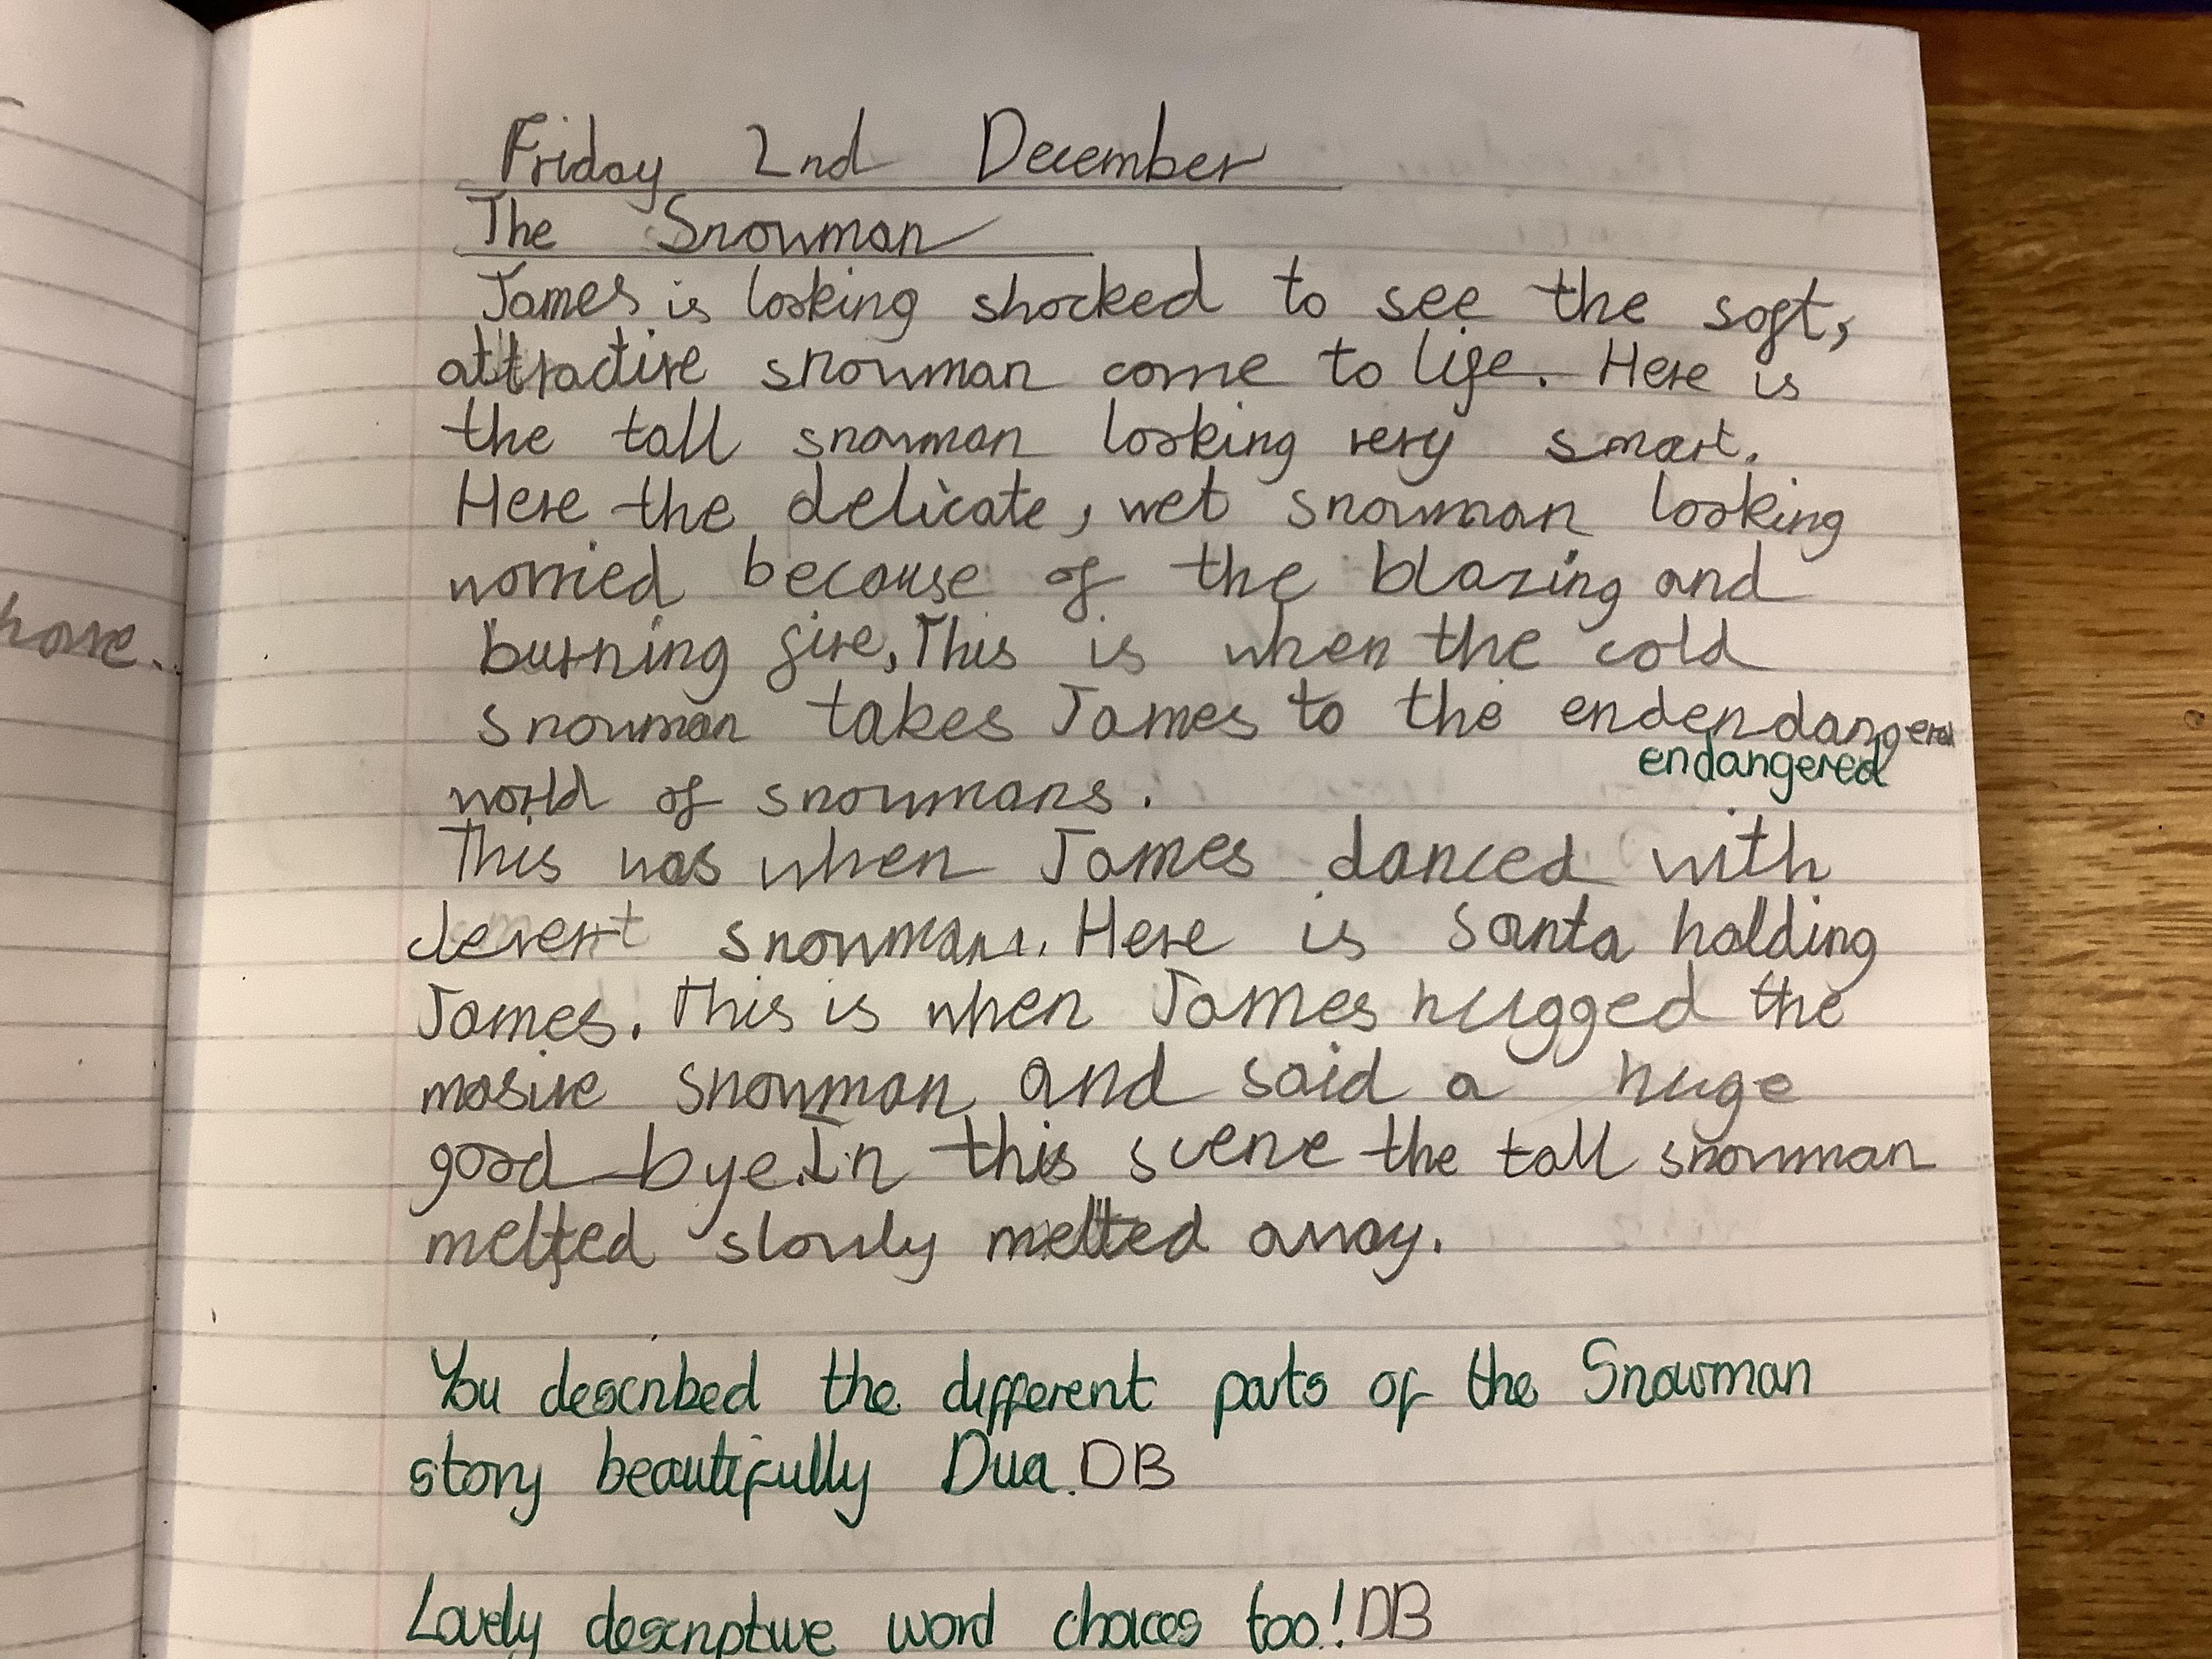 Friday 2nd December
The Snowman
James is looking shocked to see the soft,
attractive snowman come to life. Here is
the tall snowman looking very smart.
Here the delicate, wet snowman looking
worried because of the blazing and
have.
burning fire, This is when the cold
snowman takes James to the
endangered
world of snowmans.
This was when James danced with
snowman. Here is Santa holding
James. This is when James hugged the
masive snowman and said a huge
good bye. In this scene the tall snowman
melted slowly melted away.
You described the different parts of the Snowman
story beautifully Dua. DB
Lovely descriptive word choices too! DB